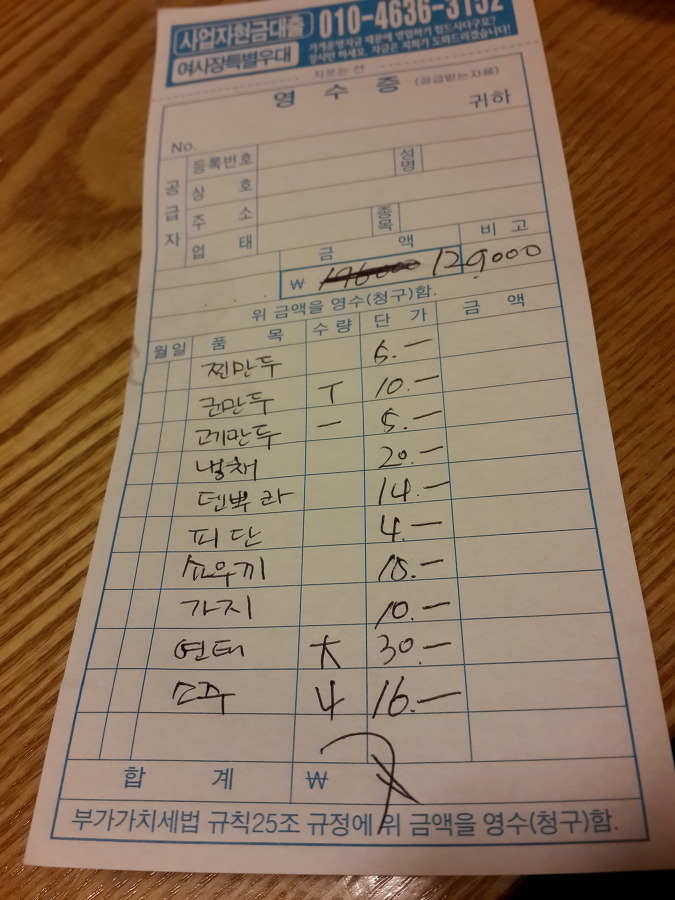 사업자현금대출 010-4636-3152
여사장특별우대 가게운영자금 때문에 영업하기 힘드시다구요?
상시만 하세요. 자금은 저희가 도와드리겠습니다!
자르는 선
영 수 증 (공급받는자용)
No. 귀하
공급자
등록번호
상 호 성명
주 소
업 태 종목
금 액 비 고
₩ 196000 129000
위 금액을 영수(청구)함.
월 일 품 목 수 량 단 가 금 액
찐만두 5.—
군만두 T 10.—
고기만두 一 5.—
냉채 20.—
덴뿌라 14.—
피단 4.—
쇼우끼 15.—
가지 10.—
연태 大 30.—
소주 4 16.—
합 계 ₩
부가가치세법 규칙25조 규정에 위 금액을 영수(청구)함.